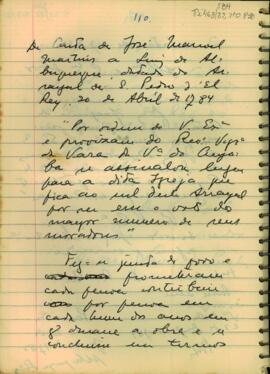 110.
De Carta de José Manoel
Martins a Luiz de Al-
buquerque, datada do Ar-
rayal de S. Pedro d'El
Rey, 20 de Abril de 1784
"Por ordem de V. Exª
e provizam do Revº Vigrº
da Vara da Vª do Cuya-
ba se assinalou lugar
para a dita Igreja que
fica ao sul deste Arrayal
por ser em a voto do
mayor numero de seus
moradores"
Fez-se junta do povo e
prometeram
cada pessoa contribuir
por pessoa em
cada hum dos anos em
que durace a obra e se
concluiu em termos